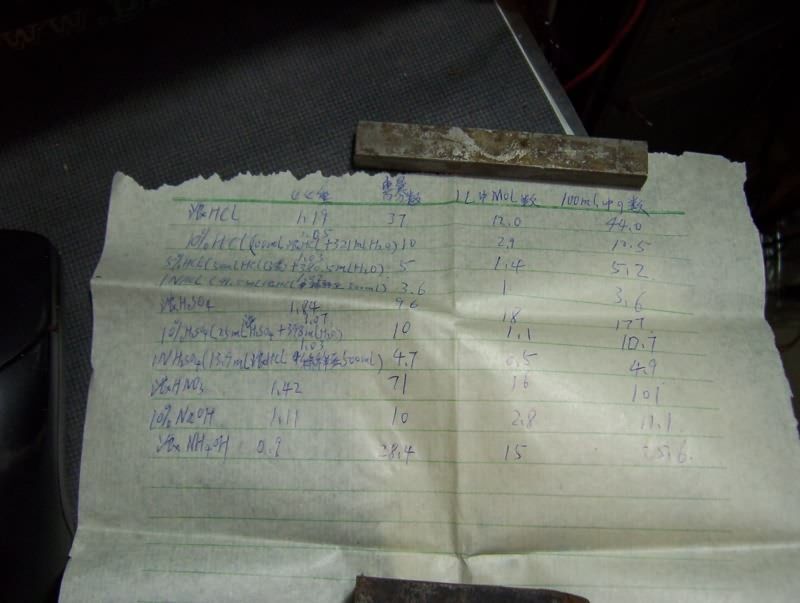 比重 重量百分数 1L中Mol数 100mL中g数
浓HCl 1.19 37 12.0 44.0
1.05
10%HCl(100mL浓HCl+321mLH2O) 10 2.9 10.5
1.03
5%HCl(50mLHCl(浓)+380.5mLH2O) 5 1.4 5.2
1NHCl 500mL) 3.6 1 3.6
浓H2SO4 1.84 96 18 177
1.07
10%H2SO4(25mL浓H2SO4+398mLH2O) 10 1.1 10.7
1.03
1NH2SO4(13.9mL浓HCl 稀释至500mL) 4.7 0.5 4.9
浓HNO3 1.42 71 16 101
10%NaOH 1.11 10 2.8 11.1
浓NH4OH 0.9 28.4 15